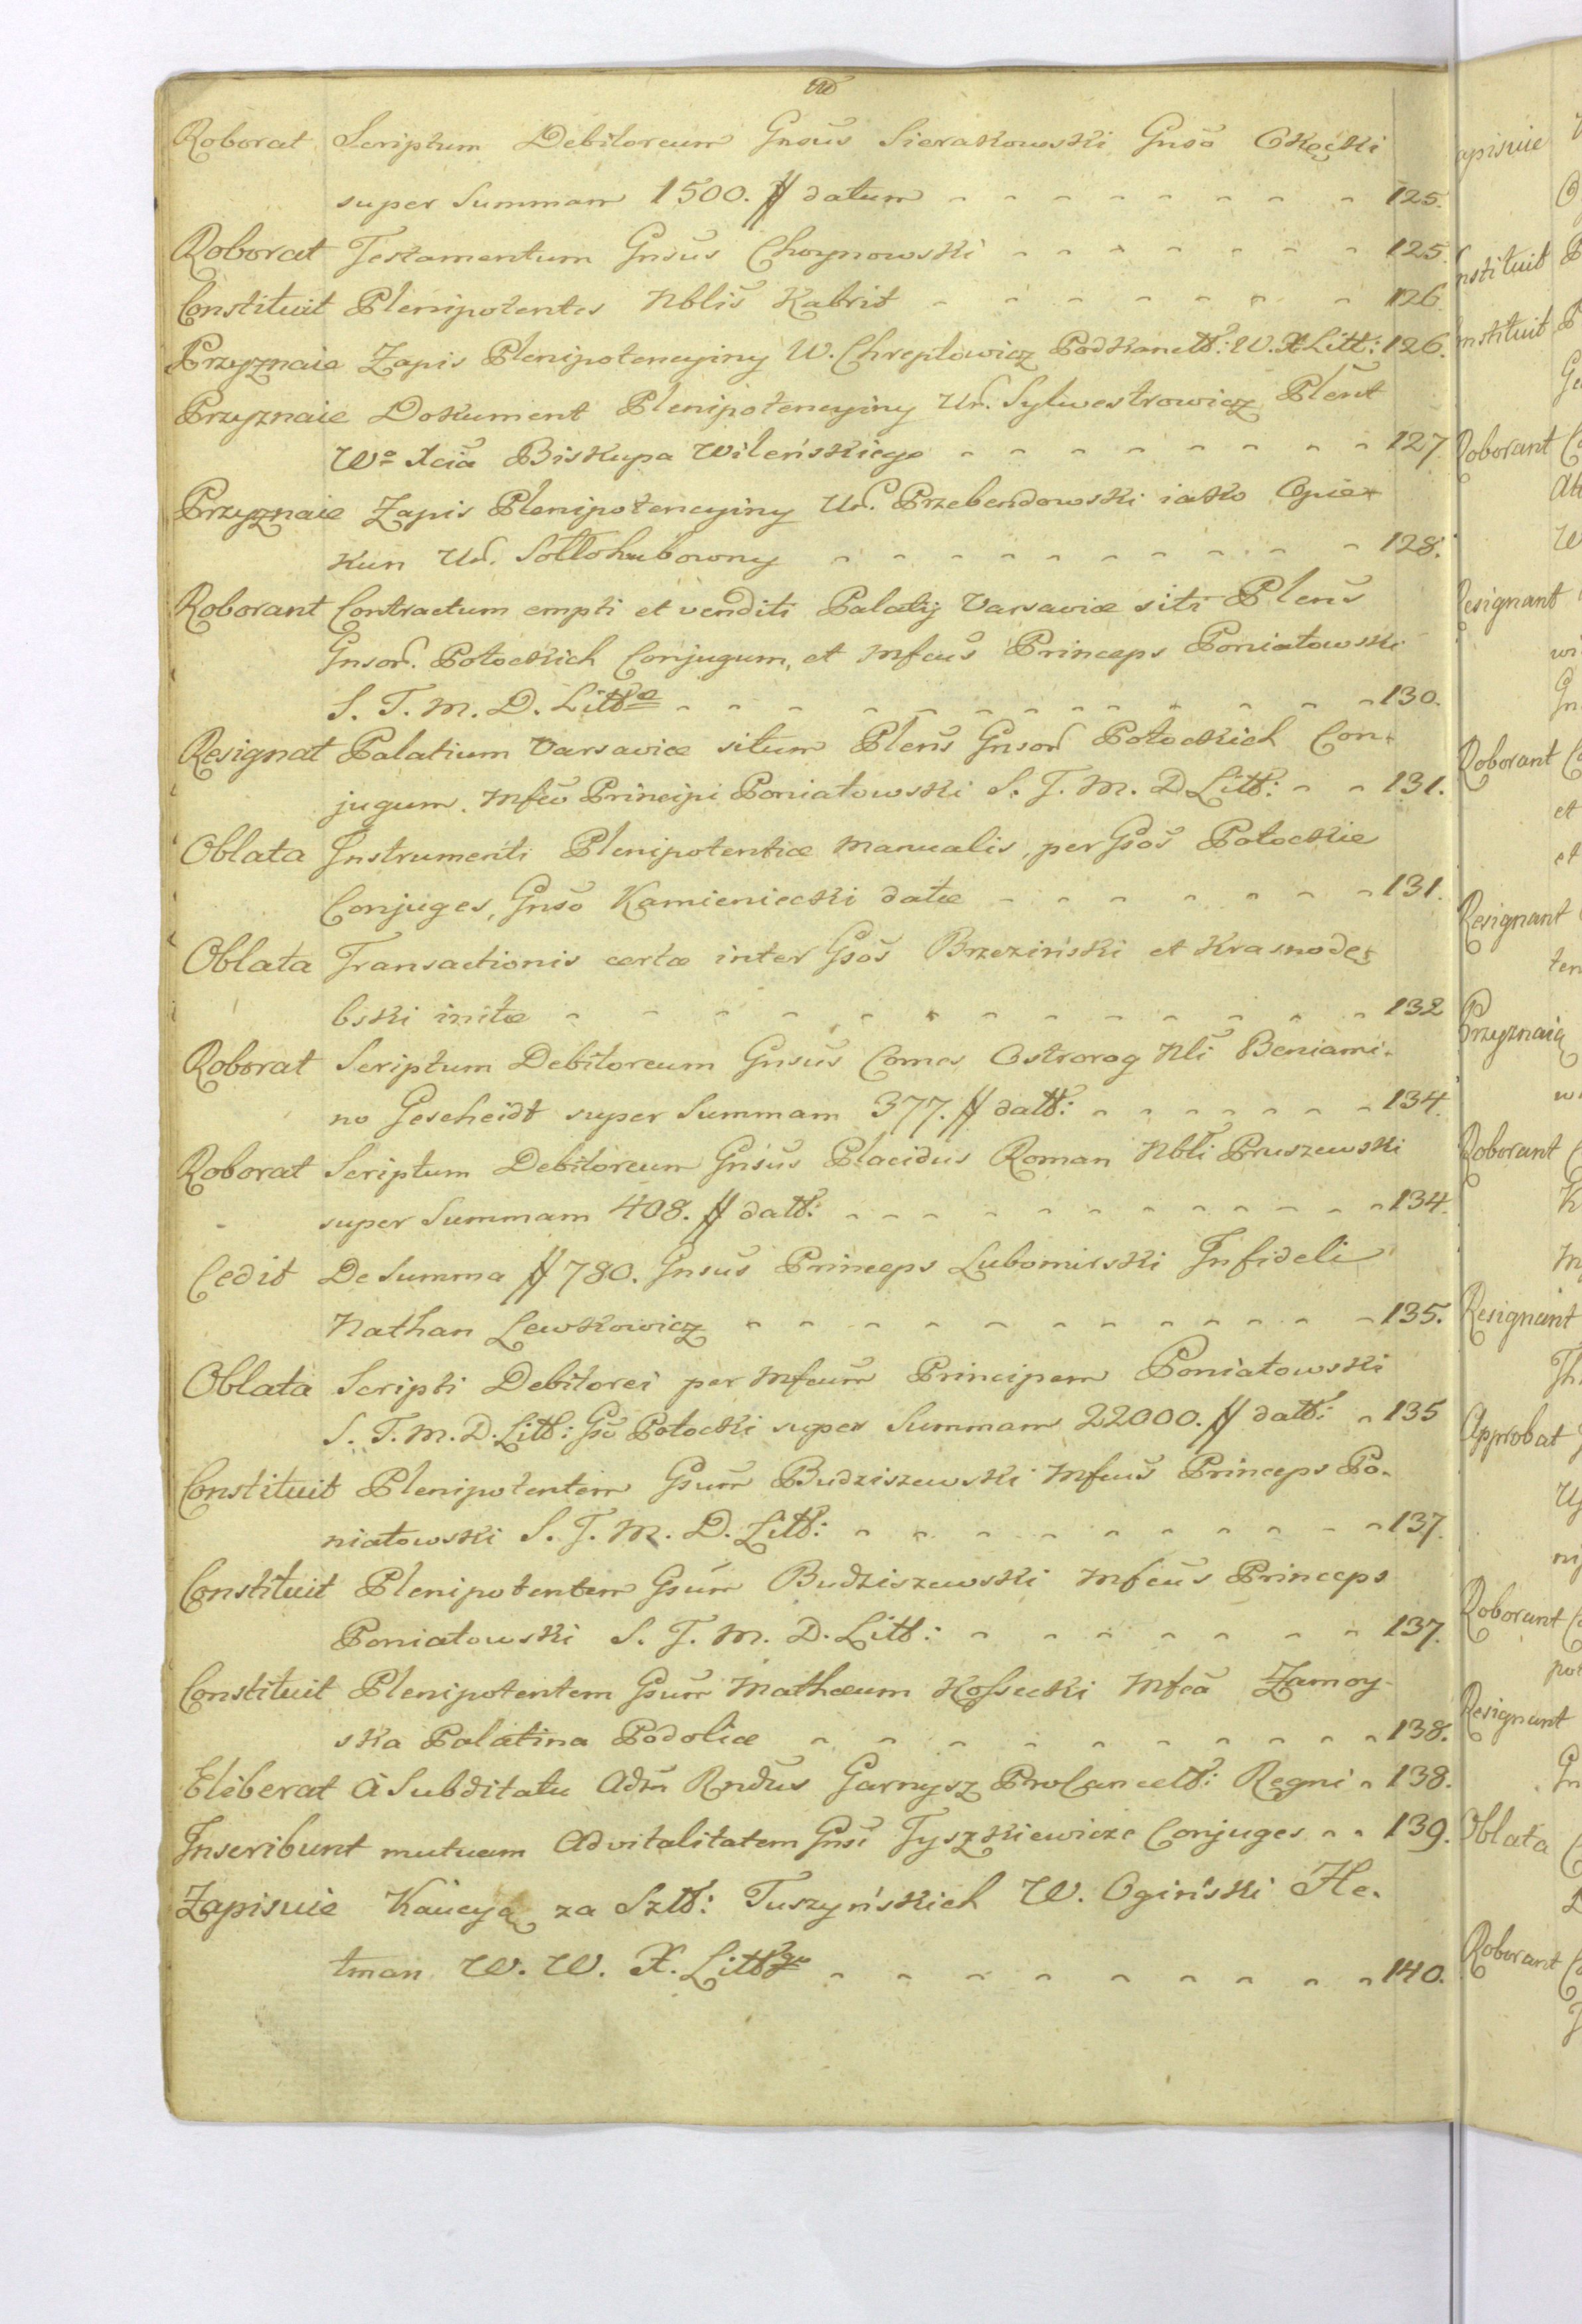 Roborat Scriptum Debitoreum Gnsus Sierakowski Gnso Okęcki
super Summam 1500. # datum 125.
Roborat Testamentum Gnsus Choynowski 125.
Constituit Plenipotentes Nblis Kabrit 126
Przyznaie Zapis Plenipotencyiny W. Chreptowicz Podkanclt: W. X Litt: 126.
Przyznaie Dokument Plenipotencyiny Ur. Sylwestrowicz Plent
Wo Xcia Biskupa Wileńskiego 127
Przyznaie Zapis Plenipotencyiny Ur. Przebendowski iako Opie-
kun Ur. Sołłohubowny 128.
Roborant Contractum empti et venditi Palatij Varsaviæ siti Plens
Gnsor. Potockich Conjugum, et Mfcus Princeps Poniatowski
S. T. M. D. Littæ 130.
Resignat Palatium Varsaviæ situm Plens Gnsor Potockich Con-
jugum. Mfco Principi Poniatowski S. T. M. D Litt: 131.
Oblata Instrumenti Plenipotentiæ Manualis, per Gsos Potockie
Conjuges, Gnso Kamieniecki datæ 131.
Oblata Transactionis certæ inter Gsos Brzeziński et Krasnodę-
bski initæ 132
Roborat Scriptum Debitoreum Gnsus Comes Ostrorog Nli Beniami-
no Gescheidt super Summam 377. # datt: 134.
Roborat Scriptum Debitoreum Gnsus Placidus Roman Nbli Pruszewski
super Summam 408. # datt: 134.
Cedit De Summa # 780. Gnsus Princeps Lubomirski Infideli
Nathan Lewkowicz 135.
Oblata Scripti Debitorei per Mfcum Principem Poniatowski
S. T. M. D. Litt: Gso Potocki super Summam 22000. # datt: 135
Constituit Plenipotentem Gsum Budziszewski Mfcus Princeps Po-
niatowski S. T. M. D. Litt: 137.
Constituit Plenipotentem Gsum Budziszewski Mfcus Princeps
Poniatowski S. T. M. D. Litt: 137.
Constituit Plenipotentem Gsum Mathæum Kossecki Mfca Zamoy-
ska Palatina Podoliæ 138.
Eliberat à Subditatu Adm Rndus Garnysz ProCancelt: Regni 138.
Inscribunt mutuam Advitalitatem Gnsi Tyszkiewicze Conjuges 139.
Zapisuie Kaucyą za Sztt: Tuszyńskich W. Ogiński He-
tman W. W. X. Littgo 140.
apisuie
nstituit
nstituit
Roborant
Resignant
Roborant
et
et
Resignant
Przyznaią
Roborant
Resignant
Approbat
Roborant
Resignant
Oblata
Roborant